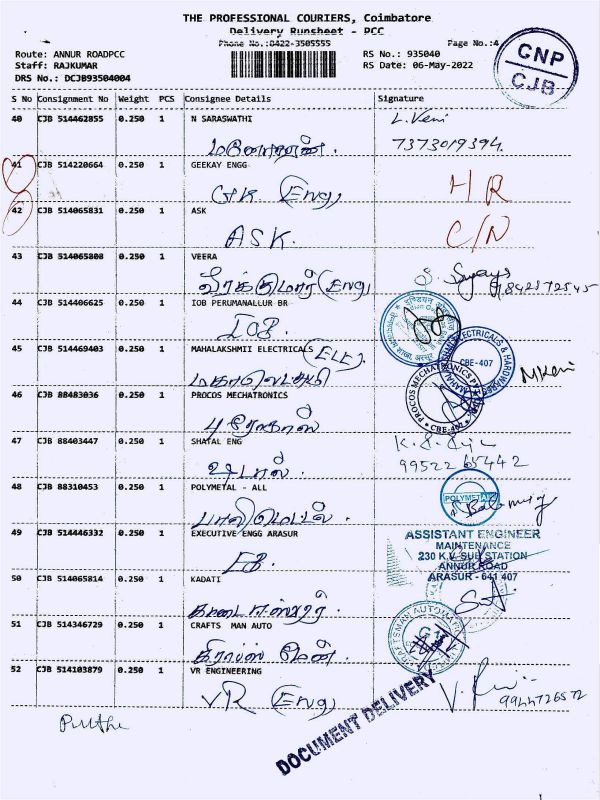 THE PROFESSIONAL COURIERS, Coimbatore
Delivery Runsheet - PCC
Phone No.:0422-3505555
Page No.:4
Route: ANNUR ROADPCC
RS No.: 935040
Staff: RAJKUMAR
RS Date: 06-May-2022
DRS No.: DCJB93504004
CNP
CJB
S No Consignment No Weight PCS Consignee Details Signature
40 CJB 514462855 0.250 1 N SARASWATHI L. Veni
7373019394.
CJB 514220664 0.250 1 GEEKAY ENGG
GK (Eng) HR
42 CJB 514065831 0.250 1 ASK
ASK. C/N
43 CJB 514065808 0.250 1 VEERA
வீரக்குமார் (Eng) 9842572545
44 CJB 514406625 0.250 1 IOB PERUMANALLUR BR
IOB.
45 CJB 514469403 0.250 1 MAHALAKSHMII ELECTRICALS (ELE).
மகாலெட்சுமி
ELECTRICALS & HARDWARES
CBE-407
46 CJB 88483036 0.250 1 PROCOS MECHATRONICS
புரோகாஸ்
PROCOS MECHATRONICS
CBE-407
47 CJB 88403447 0.250 1 SHATAL ENG
99522 65442
48 CJB 88310453 0.250 1 POLYMETAL - ALL
பாலிமெட்டல்.
POLYMETAL
49 CJB 514446332 0.250 1 EXECUTIVE ENGG ARASUR
EB.
ASSISTANT ENGINEER
MAINTENANCE
230 K.V. SUB STATION
ANNUR ROAD
ARASUR - 641 407
50 CJB 514065814 0.250 1 KADATI
51 CJB 514346729 0.250 1 CRAFTS MAN AUTO
கிராப்ஸ் மேன்.
52 CJB 514103879 0.250 1 VR ENGINEERING
VR (Eng) 9944726572
DOCUMENT DELIVERY